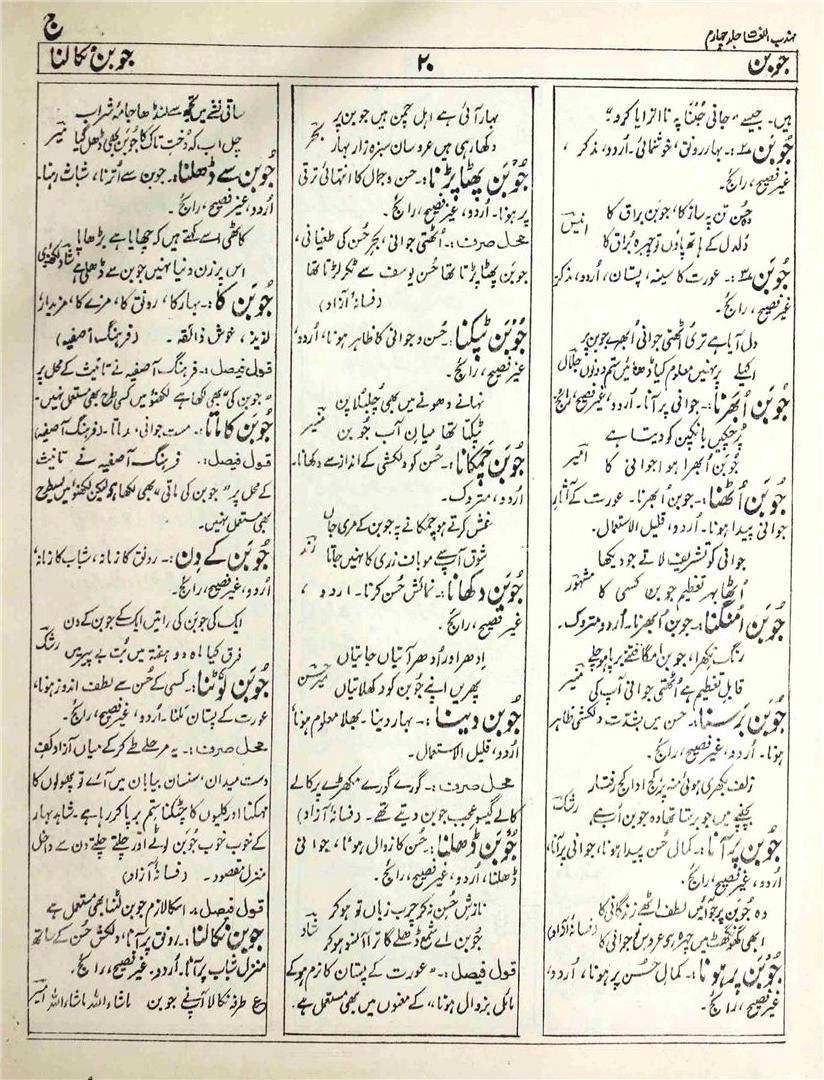 مہذب اللغات جلد چہارم
ج
جوبن
۲۰
جوبن نکالنا
ہیں۔ جیسے "جانی جُبنا پہ نا اترایا کرو"
جُوبَن :۔ بہار، رونق، خوشنمائی۔ اُردو، مذکر،
غیر فصیح، رائج۔
وہ حُسن تن پہ ساز کا، جوبن براق کا
انیسؔ
دُلدل کے ہاتھ پاؤں تو چہرہ بُراق کا
جُوبَن :۔ عورت کا سینہ، پستان، اُردو، مذکر
غیر فصیح، رائج۔
دل آیا ہے تری اُٹھتی جوانی اُبھرے جوبن پر
اکیلے پر نہیں معلوم کیا ڈھائیں ستم دونوں
جلالؔ
جُوبَن اُبَھرنا :۔ جوانی پر آنا۔ اُردو، غیر فصیح، رائج
ہر جگہیں بانکپن کو دیتا ہے
جُوبن اُبھرا ہوا جوانی کا
امیرؔ
جُوبَن اُٹھنا :۔ جوبن اُبھرنا۔ عورت کے آثارِ
جوانی پیدا ہونا۔ اُردو، قلیل الاستعمال۔
جوانی کو تشریف لاتے جو دیکھا
اُٹھا بہر تعظیم جوبن کسی کا
مشہورؔ
جُوبَن اُمنگنا :۔ جوبن اُبھرنا۔ اُردو متروک۔
رنگ نکھرا، جوبن امگا فتنے برپا ہو چلے
قابلِ تعظیم ہے اُٹھتی جوانی آپ کی
منیرؔ
جُوبَن بَرَسنا :۔ حسن میں بشدت دلکشی ظاہر
ہونا۔ اُردو، غیر فصیح، رائج۔
زلف بکھری ہوئی مُنہ پر کج ادا کج رفتار
بچپنے میں جو برستا تھا وہ جوبن اُبھرے
رشکؔ
جُوبَن پر آنا :۔ کمالِ حُسن پیدا ہونا، جوانی پر آنا،
اُردو، غیر فصیح، رائج۔
وہ جُوبَن پر جو آئیں لطف اٹھے زندگانی کا
ابھی گھونگھٹ میں چہرہ ہے عروسِ نو جوانی کا
(فسانۂ آزاد)
جُوبَن پر ہونا :۔ کمالِ حُسن پر ہونا، اُردو،
غیر فصیح، رائج۔
بہار آئی ہے اہلِ چمن ہیں جوبن پر
دکھا رہی ہیں عروسانِ سبزہ زار بہار
بحرؔ
جُوبَن پھٹا پڑنا :۔ حسن و جمال کا انتہائی ترقی
پر ہونا۔ اُردو، غیر فصیح، رائج۔
محل صرف :۔ اُٹھتی جوانی، بحرِ حُسن کی طغیانی،
جوبن پھٹا پڑتا تھا حُسنِ یوسف سے ٹکر لڑتا تھا
(فسانۂ آزاد)
جُوبَن ٹپکنا :۔ حُسن و جوانی کا ظاہر ہونا، اُردو،
غیر فصیح، رائج۔
نہانے دھونے میں بھی چُلبُلا پن
ٹپکتا تھا میانِ آب جوبن
منیرؔ
جُوبَن چمکانا :۔ حُسن کو دلکشی کے انداز سے دکھانا۔
اُردو، متروک۔
غش کرتے ہو چمکانے پہ جوبن کے مری جاں
شوق آپ سے موبانِ زری کا نہیں جاتا
رندؔ
جُوبَن دکھانا :۔ نمائشِ حُسن کرنا۔ اردو،
غیر فصیح، رائج۔
اِدھر اور اُدھر آتیاں جاتیاں
پھریں اپنے جوبن کو دکھلاتیاں
میر حسنؔ
جُوبَن دینا :۔ بہار دینا۔ بھلا معلوم ہونا
اُردو، قلیل الاستعمال۔
محل صرف :۔ گورے گورے مکھڑے پر کالے
کالے گیسو عجیب جوبن دیتے تھے۔ (فسانۂ آزاد)
جُوبَن ڈھلنا :۔ حُسن کا زوال ہونا، جوانی
ڈھلنا، اردو، غیر فصیح، رائج۔
نازشِ حُسن نہ کر چرب زباں تو ہو کر
جوبن اے شمع ڈھلے گا ترا آنسو ہو کر
شادؔ
قول فیصل :۔ "عورت کے پستان کا نرم ہو کے
مائل بزوال ہونا"، کے معنوں میں بھی مستعمل ہے۔
ساقی نشے میں تجھ سے لنڈھا جامۂ شراب
چل اب کہ دُختِ تاک کا جوبن بھی ڈھل گیا
میرؔ
جُوبَن سے ڈھلنا :۔ جوبن سے اُترنا، شباب نہ رہنا۔
اُردو، غیر فصیح، رائج۔
کاٹھی اسے کہتے ہیں کہ چھایا ہے بڑھاپا
اس پر زنِ دنیا نہیں جوبن سے ڈھلی ہے
شاد لکھنوی
جُوبَن کا :۔ بہار کا، رونق کا، مزے کا، مزیدار
لذیذ، خوش ذائقہ۔ (فرہنگ آصفیہ)
قول فیصل :۔ فرہنگ آصفیہ نے تانیث کے محل پر
"جوبن کی" بھی لکھا ہے لکھنؤ میں کسی طرح بھی مستعمل نہیں۔
جُوبَن کا ماتا :۔ مستِ جوانی، ماتا۔ (فرہنگ آصفیہ)
قول فیصل :۔ فرہنگ آصفیہ نے تانیث
کے محل پر "جوبن کی ماتی" بھی لکھا ہو لیکن لکھنؤ میں کسی طرح
بھی مستعمل نہیں۔
جُوبَن کے دِن :۔ رونق کا زمانہ، شباب کا زمانہ،
اُردو، غیر فصیح، رائج۔
ایک کی جوبن کی راتیں ایک کے جوبن کے دن
فرق کیا ماہِ دو ہفتہ میں بُتِ بے پیر میں
رشکؔ
جُوبَن لُوٹنا :۔ کسی کے حُسن سے لطف اندوز ہونا،
عورت کے پستان مَلنا۔ اردو، غیر فصیح، رائج۔
محل صرف :۔ یہ مرحلے طے کر کے میاں آزاد کفِ
دست میدان، سنسان بیابان میں آئے تو پھولوں کا
مہکنا اور کلیوں کا چٹکنا ستم برپا کر رہا ہے۔ شاہدِ بہار
کے خوب خوب جُوبن لوٹے اور چلتے چلتے دن سے داخلِ
منزلِ مقصود۔ (فسانۂ آزاد)
قول فیصل :۔ اسکا لازم جوبن لٹنا بھی مستعمل ہے
جُوبَن نکالنا :۔ رونق پر آنا، دلکش حُسن کے ساتھ
منزلِ شباب پر آنا۔ اُردو۔ غیر فصیح، رائج۔
ع طرفہ نکالا آپنے جوبن ماشاء اللہ ماشاء اللہ
امیرؔ